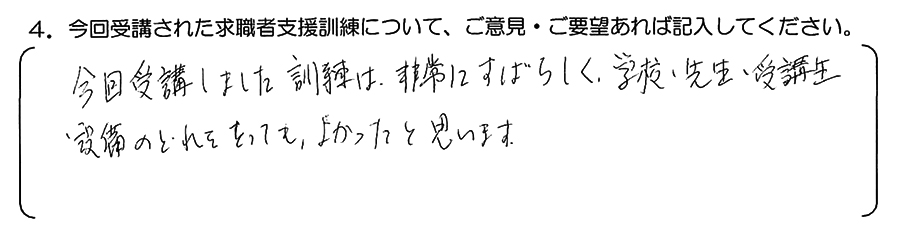 4．今回受講された求職者支援訓練について、ご意見・ご要望あれば記入してください。
今回受講しました訓練は、非常にすばらしく、学校・先生・受講生
設備のどれをとっても、よかったと思います。